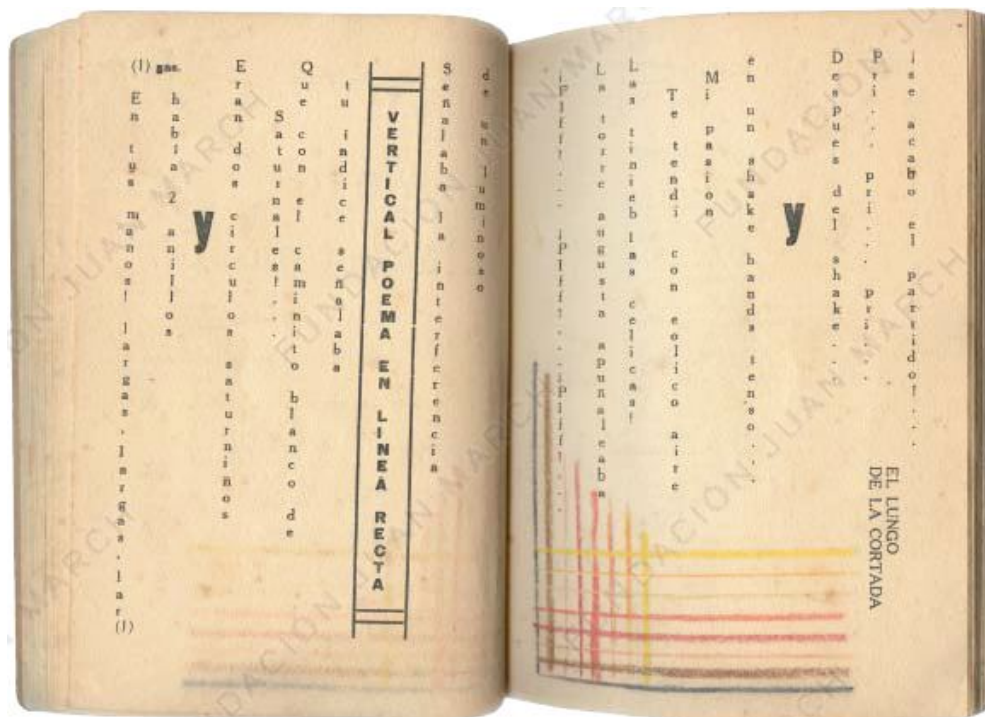 En tus manos! largas, largas, lar(1)
(1) gas.
habia 2 anillos
y
Eran dos circulos saturniños
Saturnales!...
Que con el caminito blanco de
tu indice señalaba
VERTICAL POEMA EN LINEA RECTA
Señalaba la interferencia
de un luminoso
¡Plfff!... ¡Plfff!... ¡Plfff!...
La torre augusta apuñaleaba
Las tinieblas celicas!
Te tendi con eolico aire
Mi pasion
en un shake hands tenso...
y
Despues del shake...
Pri... pri... pri... pri...
¡se acabo el partido!...
EL LUNGO
DE LA CORTADA
FUNDACION JUAN MARCH